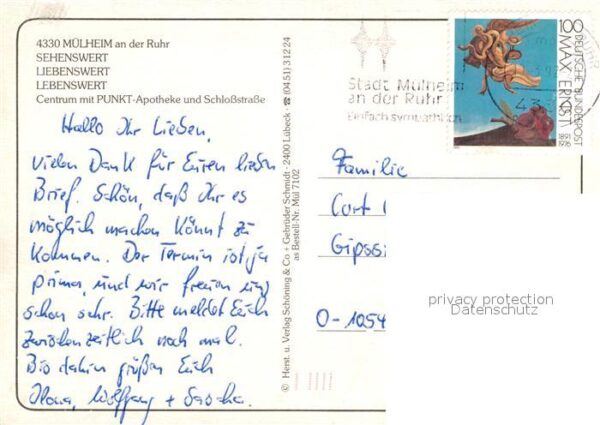 4330 MÜLHEIM an der Ruhr
SEHENSWERT
LIEBENSWERT
LEBENSWERT
Centrum mit PUNKT-Apotheke und Schloßstraße
Hallo Ihr Lieben,
vielen Dank für Euren lieben
Brief. Schön, daß Ihr es
möglich machen könnt zu
kommen. Der Termin ist ja
prima, und wir freuen uns
schon sehr. Bitte meldet Euch
zwischenzeitlich noch mal.
Bis dahin grüßen Euch
Ilona, Wolfgang + Sascha.
© Herst. u. Verlag Schöning & Co + Gebrüder Schmidt · 2400 Lübeck · ☎ (04 51) 3 12 24
as Bestell-Nr. Mül 7102
Stadt Mülheim
an der Ruhr
Einfach sympathisch
100
DEUTSCHE BUNDESPOST
MAX ERNST
1891
1976
Familie
Curt
O-1054
privacy protection
Datenschutz